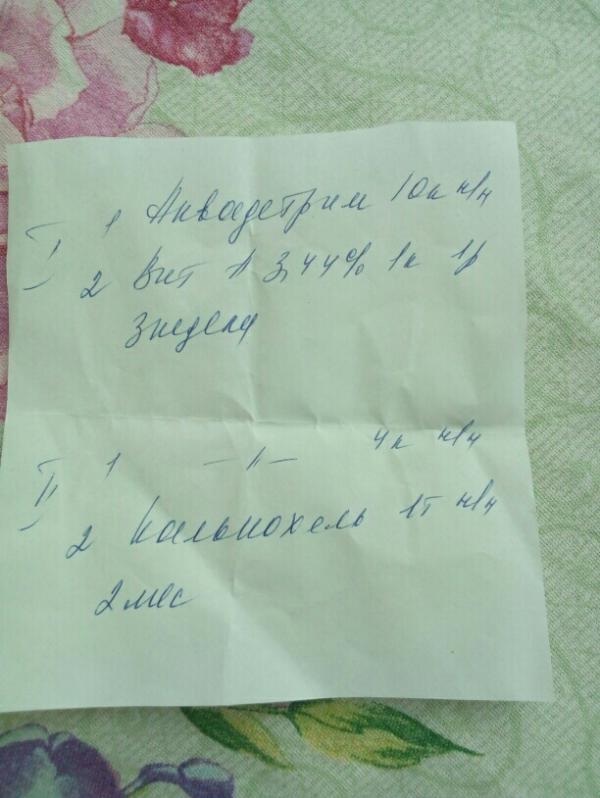 I 1 Аквадетрим 10к н/н
2 Вит А 3,44% 1к 1р
3 недели
II 1 —"— 4к н/н
2 Кальцохель 1т н/н
2 мес